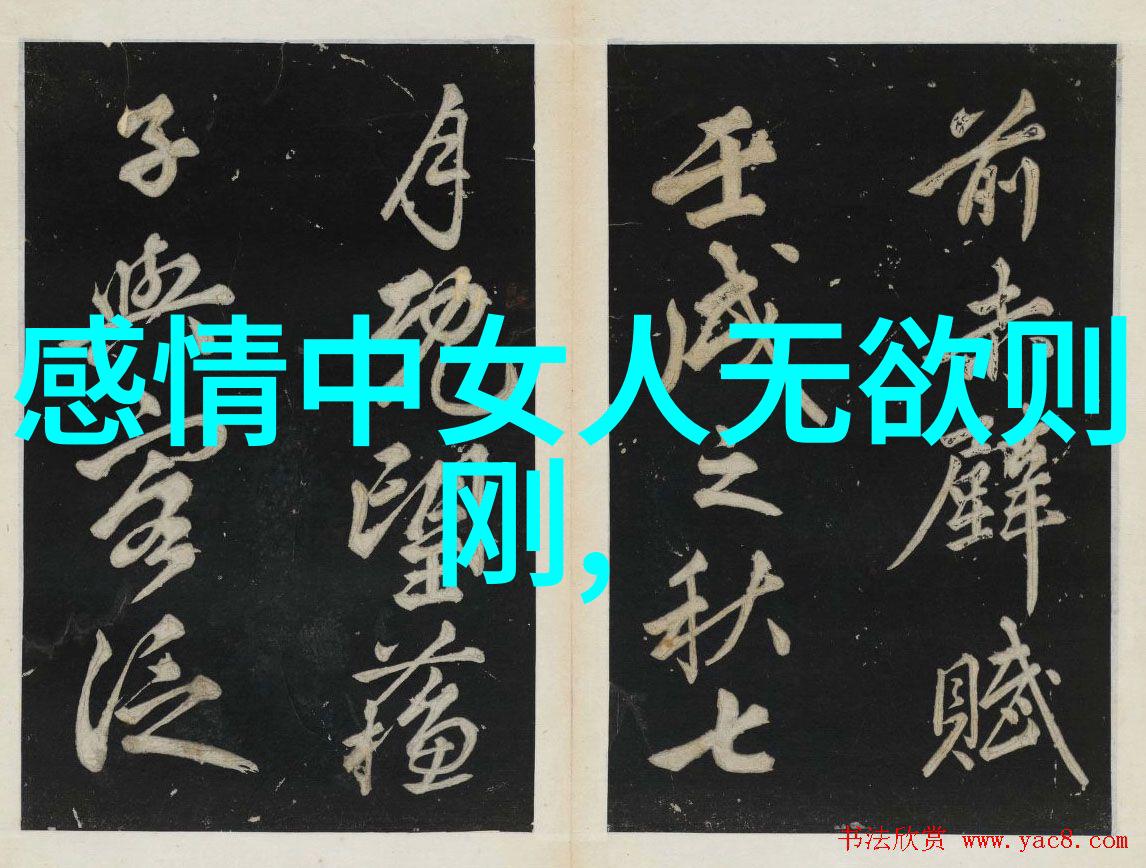 感情中女人无欲则
刚,
前赤壁賦
壬戌之秋七
月既望蘓
子與客泛
书法欣赏 www.yac8.com